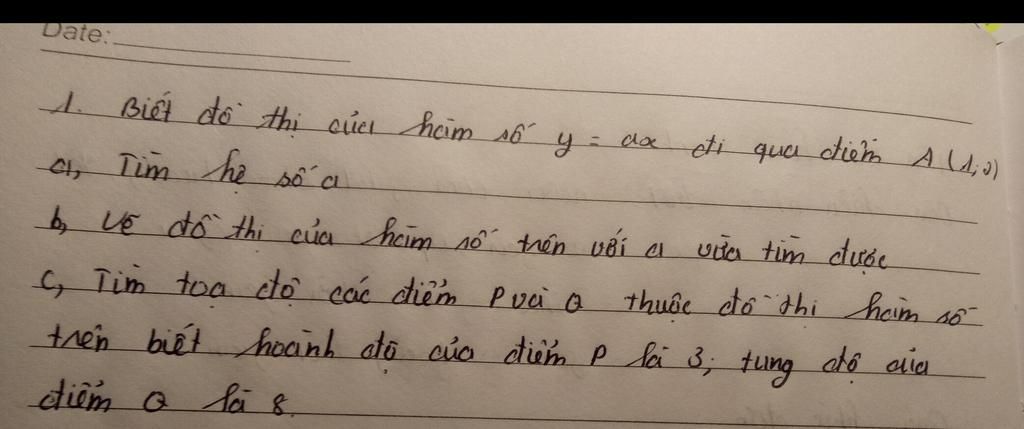 Date:
1. Biết đồ thị của hàm số y = ax đi qua điểm A (1; 2)
a, Tìm hệ số a
b, Vẽ đồ thị của hàm số trên với a vừa tìm được
c, Tìm toạ độ các điểm P và Q thuộc đồ thị hàm số
trên biết hoành độ của điểm P là 3; tung độ của
điểm Q là 8.